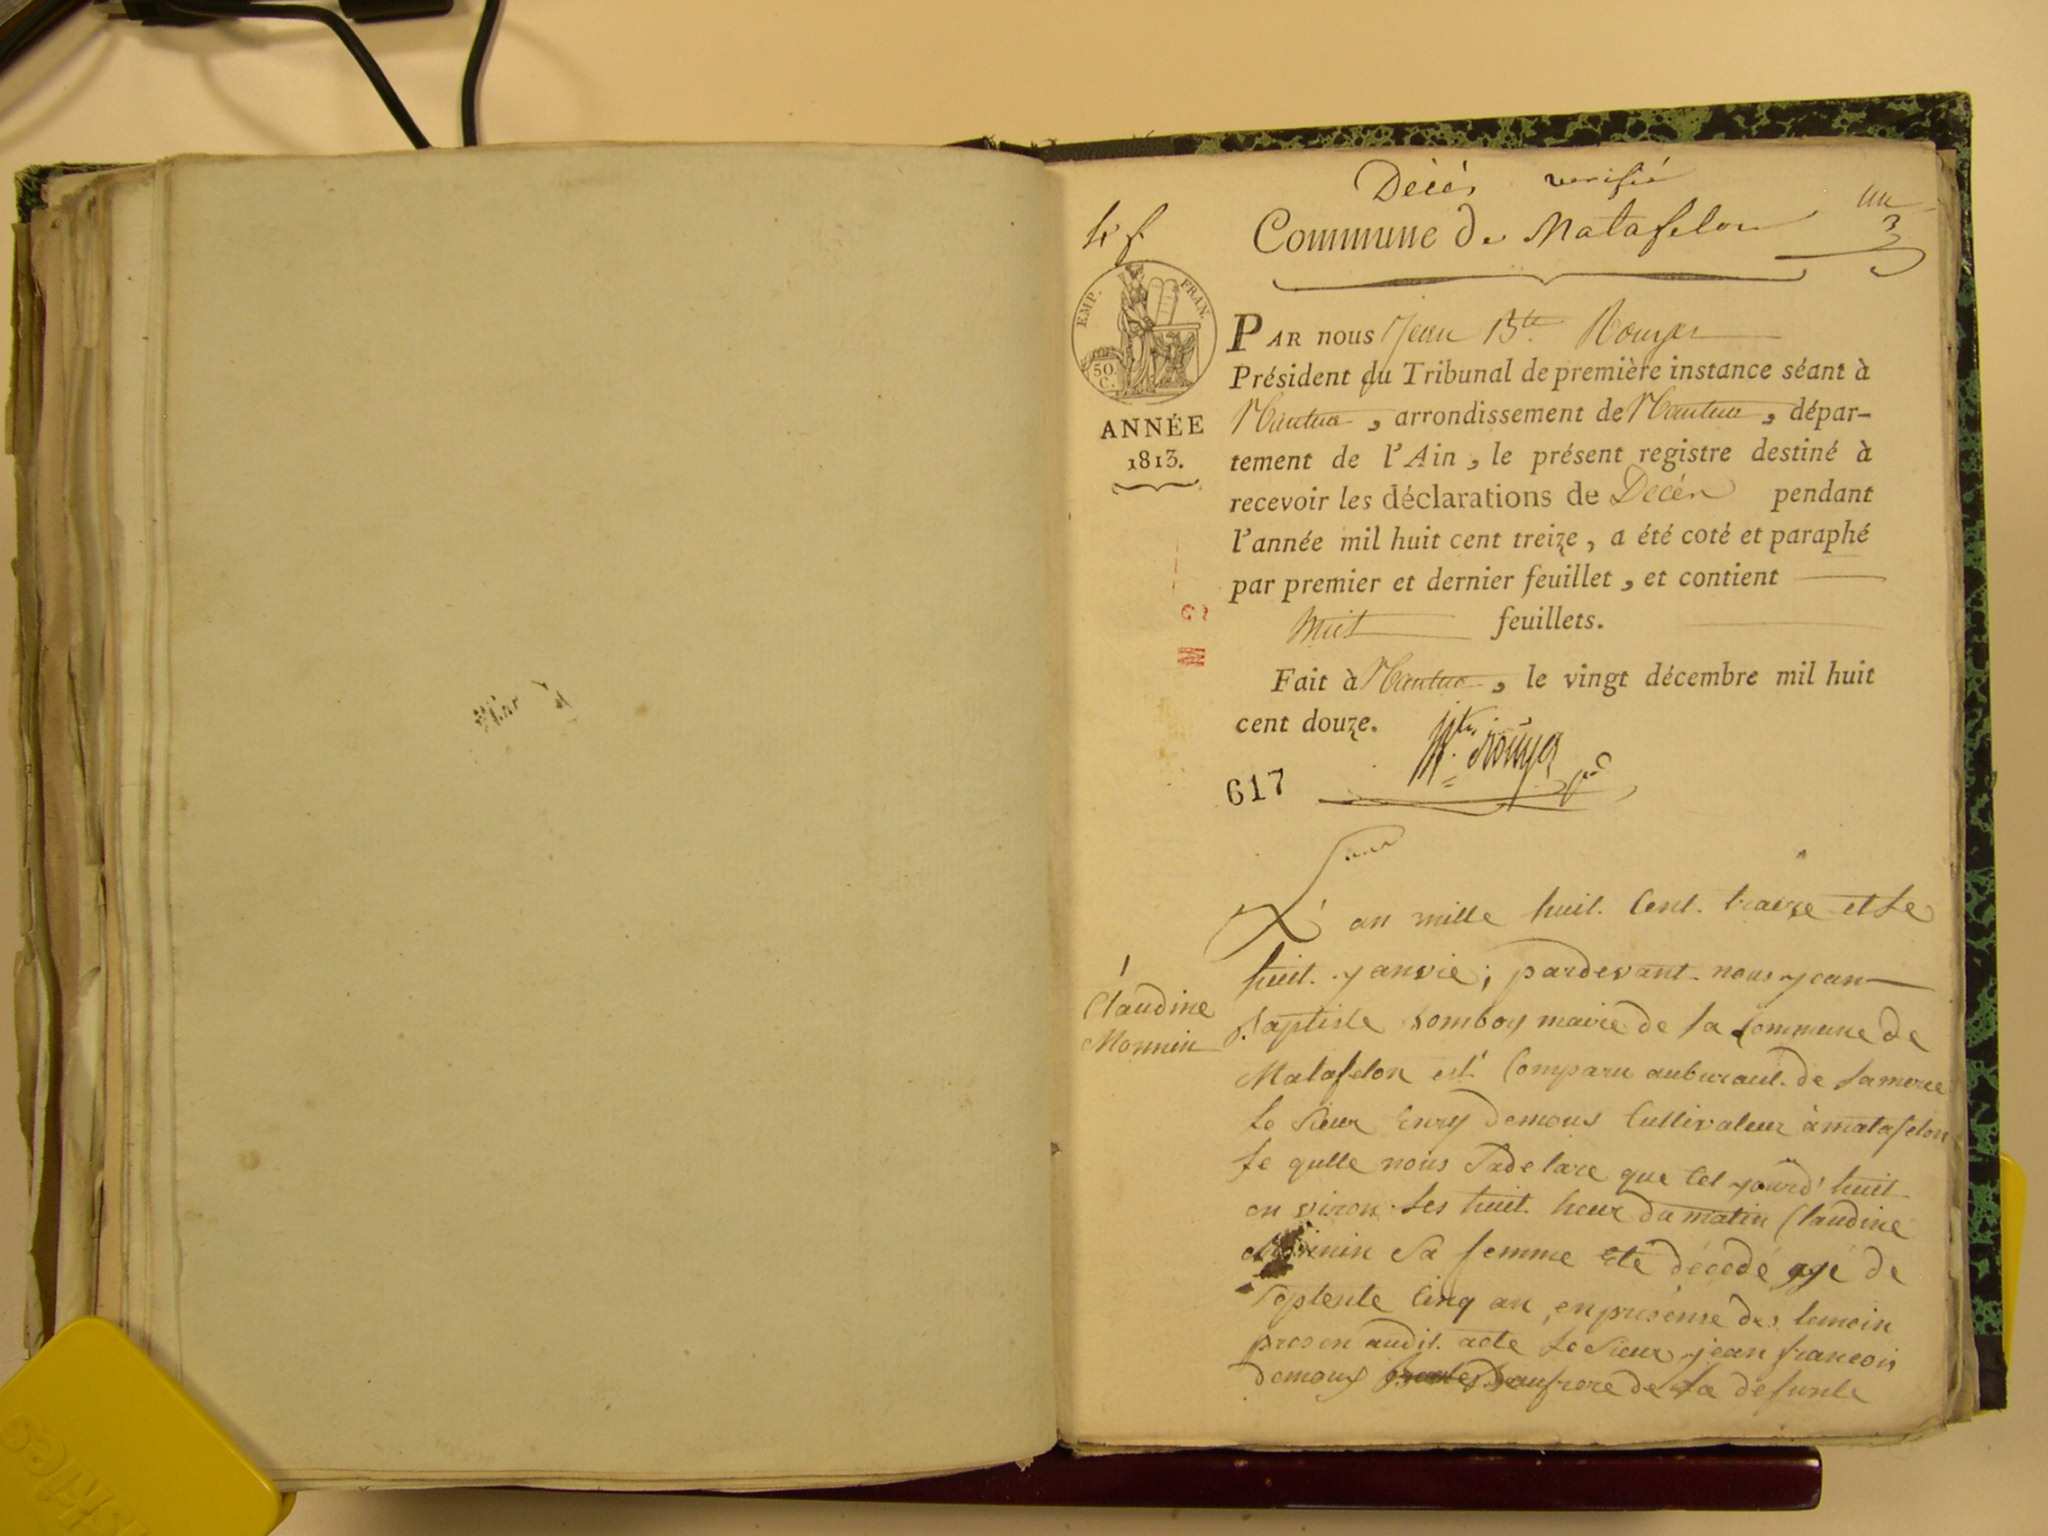 Décés verifié
4 f
un
3
Commune de Matafelon
EMP. FRAN.
50.
C.
ANNÉE
1813.
PAR nous Jean Bte. Rouyer
Président du Tribunal de première instance séant à
Nantua, arrondissement de Nantua, dépar-
tement de l'Ain, le présent registre destiné à
recevoir les déclarations de Décès pendant
l'année mil huit cent treize, a été coté et paraphé
par premier et dernier feuillet, et contient
huit feuillets.
Fait à Nantua, le vingt décembre mil huit
cent douze.
617
L'an mille huit Cent traize et le
huit janvie; pardevant nous jean
1
Claudine
Monnin
baptiste bomboy maire de la Commune de
Matafelon est Comparu au buraut de la merce
le sieur henry demoux Cultivateur à matafelon
le qulle nous a delare que Cet jourd'huit
en viron les huit heur du matin Claudine
Monnin Sa femme eté décedé agé de
septente Cinq an, en présense des temoin
presen audit acte le sieur jean francois
demoux beaufrere de la defunte